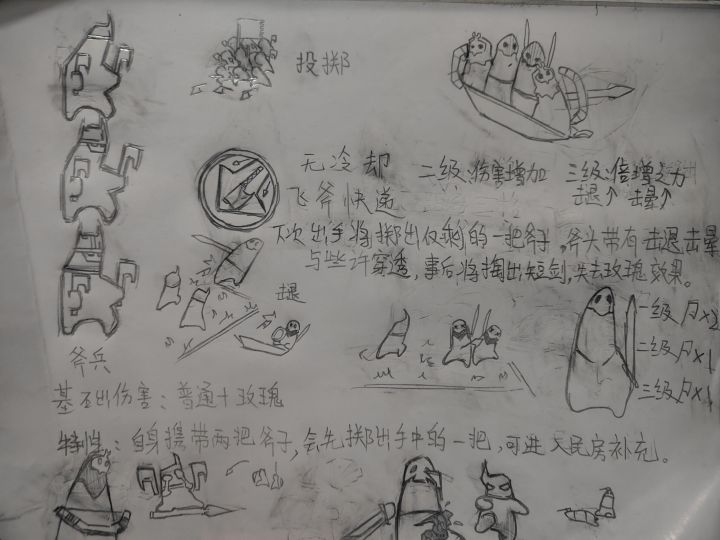 投掷
无冷却
飞斧快递
二级:伤害增加
三级:倍增之力
击退↑ 击晕↑
下次出手将掷出仅剩的一把斧子,斧头带有击退击晕
与些许穿透,事后,将掏出短剑,失去玫瑰效果。
击退
斧兵
一级
二级
三级
基础伤害:普通+玫瑰
特性:自身携带两把斧子,会先掷出手中的一把,可进入民房补充。